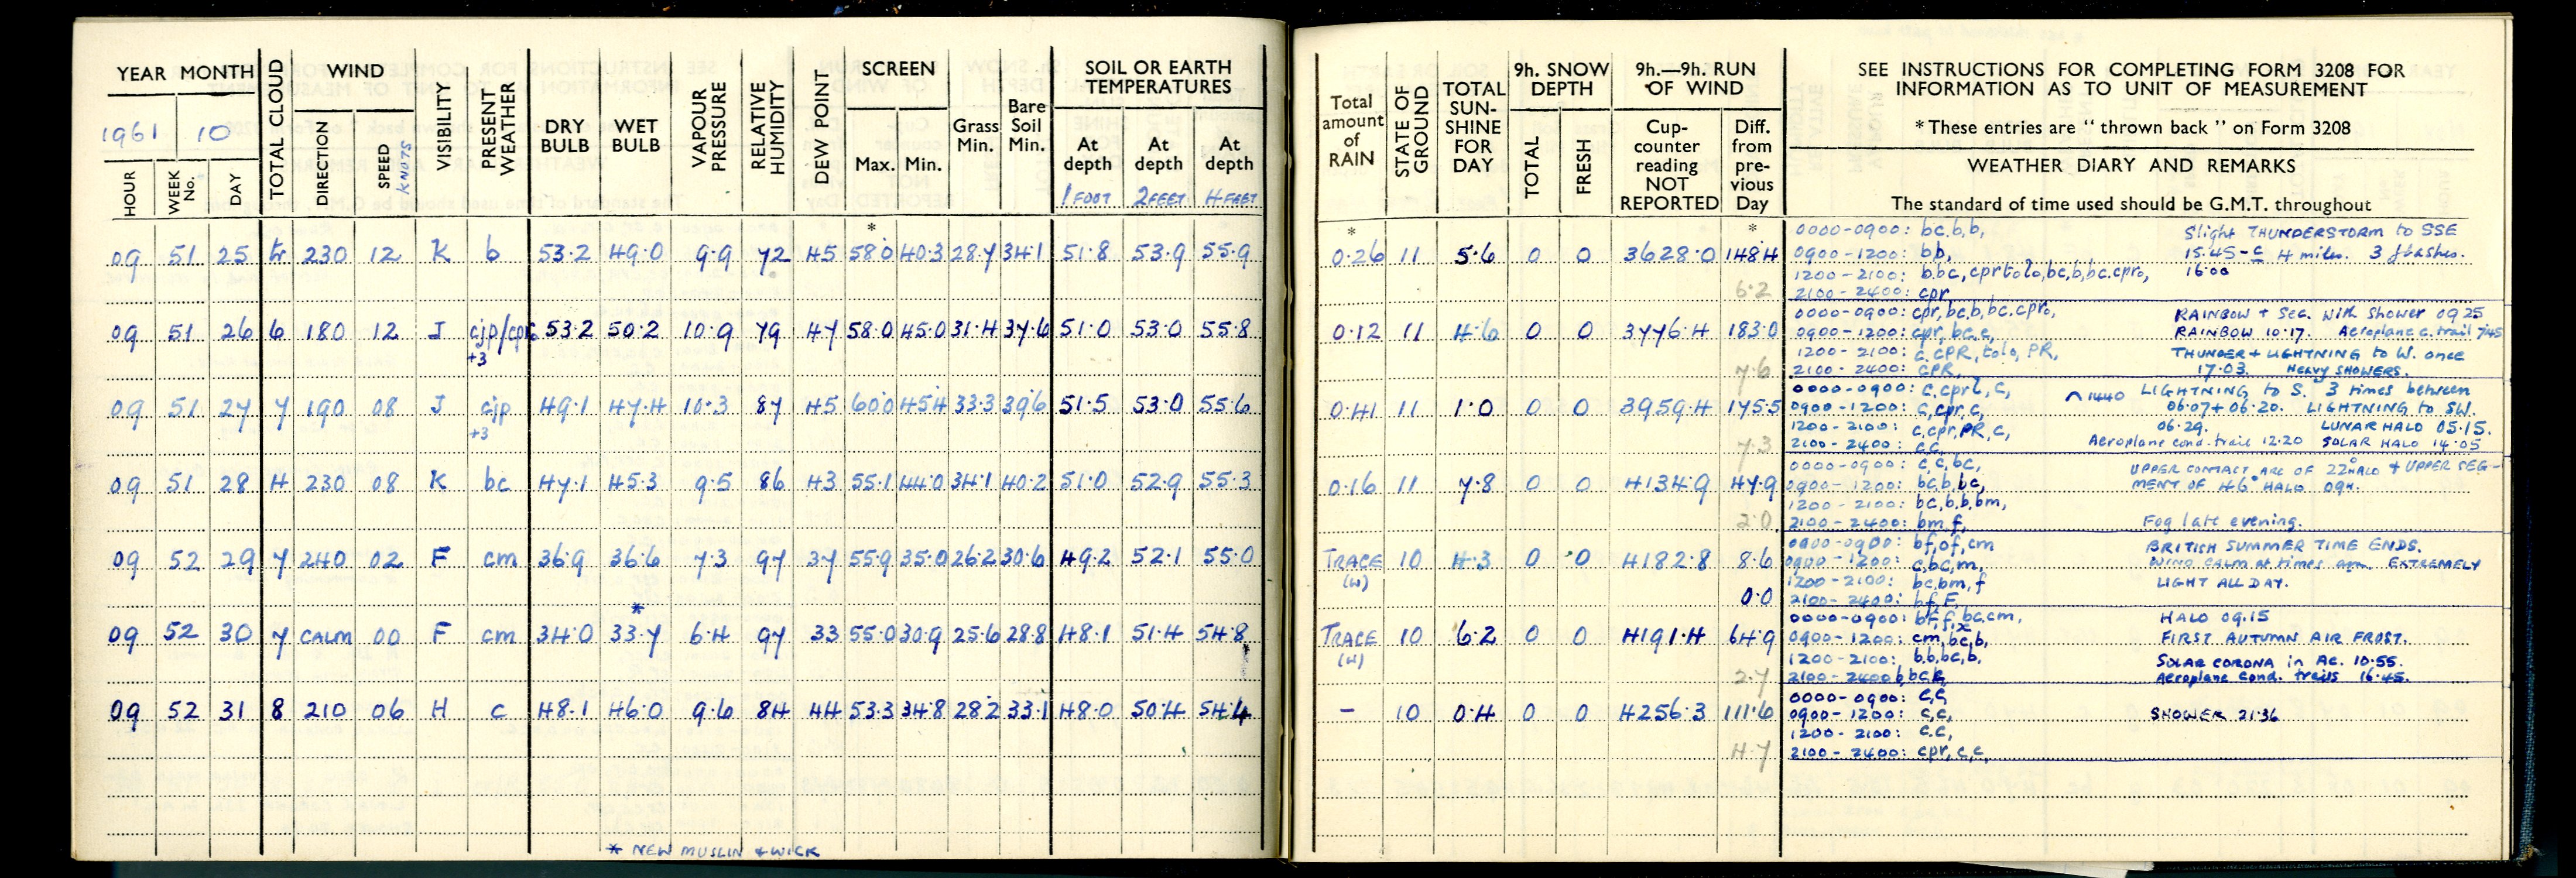 YEAR MONTH
1961 10
HOUR
WEEK No.
DAY
TOTAL CLOUD
WIND
DIRECTION
SPEED KNOTS
VISIBILITY
PRESENT WEATHER
DRY BULB
WET BULB
VAPOUR PRESSURE
RELATIVE HUMIDITY
DEW POINT
SCREEN
Max. Min.
Grass Min.
Bare Soil Min.
SOIL OR EARTH TEMPERATURES
At depth 1 FOOT
At depth 2 FEET
At depth 4 FEET
*
09 51 25 tr 230 12 K b 53.2 49.0 9.9 72 45 58.0 40.3 28.7 34.1 51.8 53.9 55.9
09 51 26 6 180 12 J cjp/cpr 53.2 50.2 10.9 79 47 58.0 45.0 31.4 37.6 51.0 53.0 55.8
+3
09 51 27 7 190 08 J cjp 49.1 47.4 10.3 87 45 60.0 45.4 33.3 39.6 51.5 53.0 55.6
+3
09 51 28 4 230 08 K bc 47.1 45.3 9.5 86 43 55.1 44.0 34.1 40.2 51.0 52.9 55.3
09 52 29 7 240 02 F cm 36.9 36.6 7.3 97 37 55.9 35.0 26.2 30.6 49.2 52.1 55.0
*
09 52 30 7 CALM 00 F cm 34.0 33.7 6.4 97 33 55.0 30.9 25.6 28.8 48.1 51.4 54.8
09 52 31 8 210 06 H c 48.1 46.0 9.6 84 44 53.3 34.8 28.2 33.1 48.0 50.4 54.4
* NEW MUSLIN & WICK
Total amount of RAIN
STATE OF GROUND
TOTAL SUN-SHINE FOR DAY
9h. SNOW DEPTH
TOTAL
FRESH
9h.—9h. RUN OF WIND
Cup-counter reading NOT REPORTED
Diff. from pre-vious Day
SEE INSTRUCTIONS FOR COMPLETING FORM 3208 FOR
INFORMATION AS TO UNIT OF MEASUREMENT
* These entries are " thrown back " on Form 3208
WEATHER DIARY AND REMARKS
The standard of time used should be G.M.T. throughout
* *
0.26 11 5.6 0 0 3628.0 148.4
6.2
0000-0900: bc,b,b, Slight THUNDERSTORM to SSE
0900-1200: b,b, 15.45-c 4 miles. 3 flashes.
1200-2100: b,bc,cprtolo,bc,b,bc.cpro, 16.00
2100-2400: cpr
0.12 11 4.6 0 0 3776.4 183.0
7.6
0000-0900: cpr,bc,b,bc.cpro, RAINBOW + Sec. with Shower 0925
0900-1200: cpr,bc,c, RAINBOW 10.17. Aeroplane c.trail 7.45
1200-2100: c.cPR,tolo,PR, THUNDER + LIGHTNING to W. once
2100-2400: cPR, 17.03. HEAVY SHOWERS.
0.41 11 1.0 0 0 3959.4 175.5
7.3
0000-0900: c,cprl,c, 1440 LIGHTNING to S. 3 times between
0900-1200: c,cpr,c, 06.07 + 06.20. LIGHTNING to SW.
1200-2100: c,cpr,PR,c, 06.29. LUNAR HALO 05.15.
2100-2400: c,c, Aeroplane cond. trail 12.20 SOLAR HALO 14.05
0.16 11 7.8 0 0 4134.9 47.9
2.0
0000-0900: c,c,bc, UPPER CONTACT ARC OF 22° HALO & UPPER SEG-
0900-1200: bc,b,bc, MENT OF 46° HALO 09h.
1200-2100: bc,b,b,bm,
2100-2400: bm,f, Fog late evening.
TRACE (W) 10 4.3 0 0 4182.8 8.6
0.0
0000-0900: bf,of,cm BRITISH SUMMER TIME ENDS.
0900-1200: c,bc,m, WIND CALM at times a.m. EXTREMELY
1200-2100: bc,bm,f LIGHT ALL DAY.
2100-2400: bf,F,
TRACE (W) 10 6.2 0 0 4191.4 64.9
2.7
0000-0900: bf,f,bc,cm, HALO 09.15
0900-1200: cm,bc,b, FIRST AUTUMN AIR FROST.
1200-2100: b,b,bc,b, SOLAR CORONA in Ac. 10.55.
2100-2400 Aeroplane Cond. trails 16.45.
- 10 0.4 0 0 4256.3 111.6
4.7
0000-0900: c,c,
0900-1200: c,c, SHOWER 21.36
1200-2100: c.c,
2100-2400: cpr,c,c,